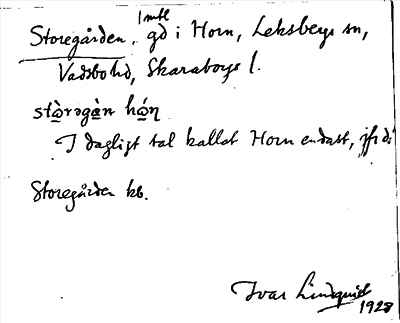 Storegården, 1 mtl gd i Horn, Leksbergs sn,
Vadsbo hd, Skaraborgs l.
stὼrəgàn hώṇ
I dagligt tal kallat Horn endast, jfr d:
Storegården kb.
Ivar Lindquist
1928